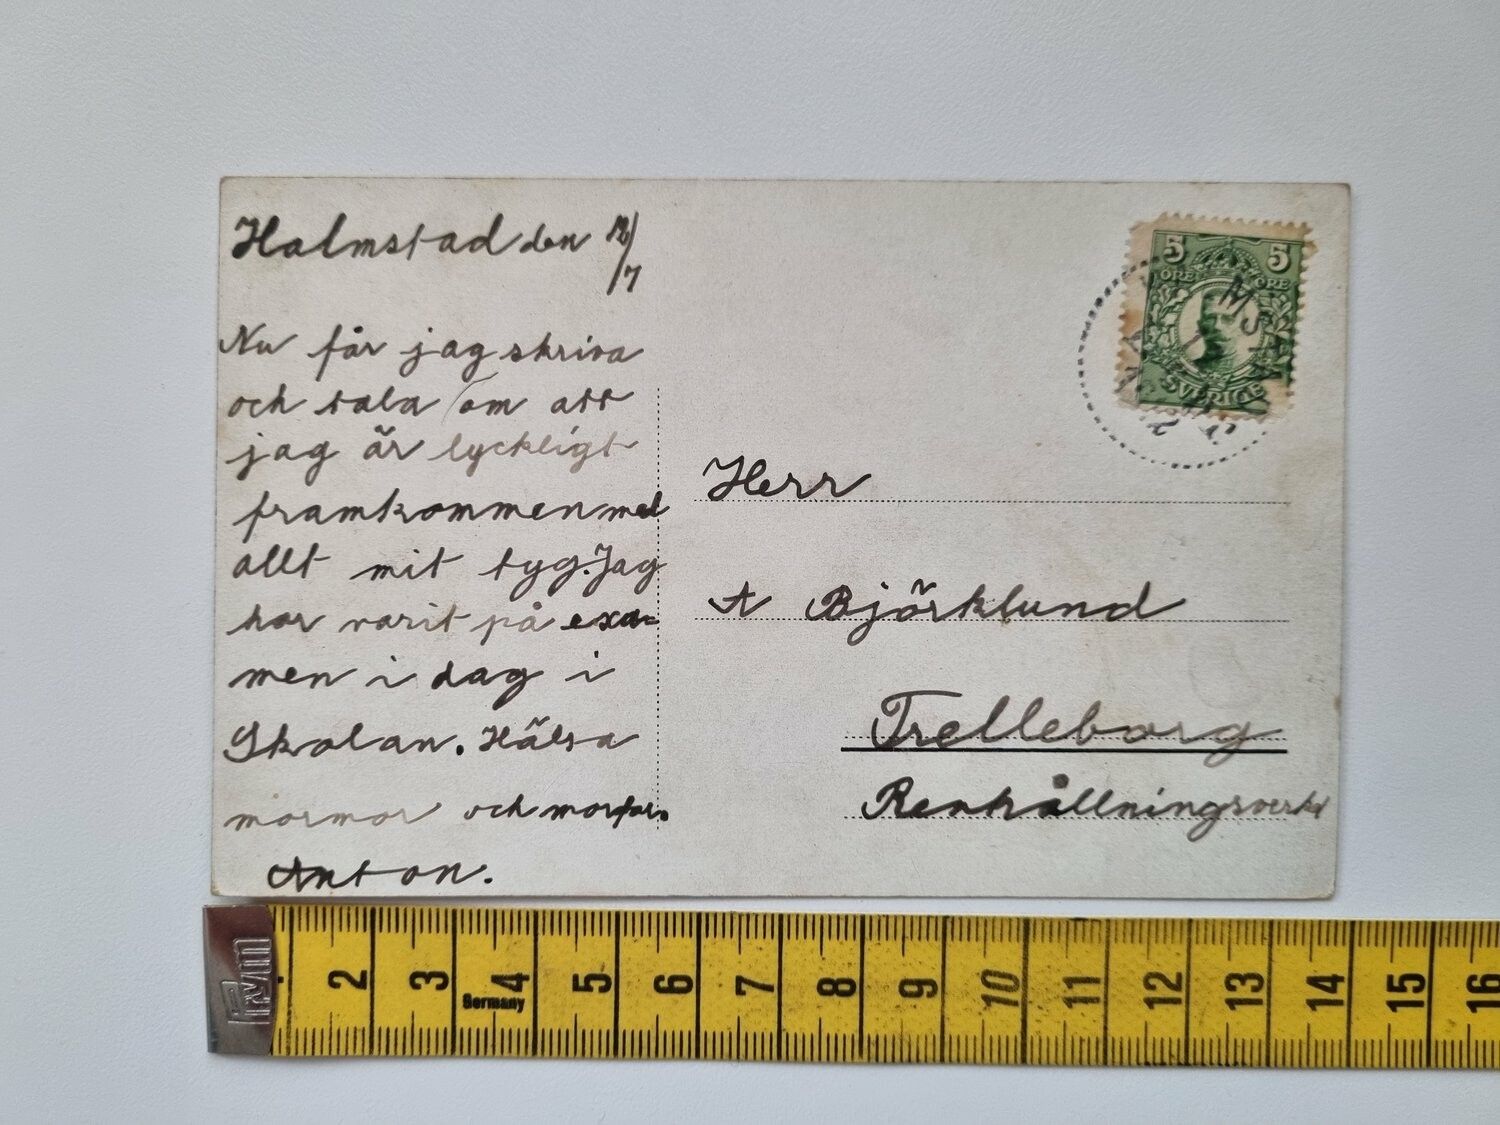 Halmstad den 12/7
Nu får jag skriva
och tala om att
jag är lyckligt
framkommen med
allt mit tyg. Jag
har varit på exa=
men i dag i
Skolan. Hälsa
mormor och morfar.
Anton.
5 5
ÖRE ÖRE
SVERIGE
Herr
A Björklund
Trelleborg
Renhållningsverket
Prym
2 3 4 5 6 7 8 9 10 11 12 13 14 15 16
Germany